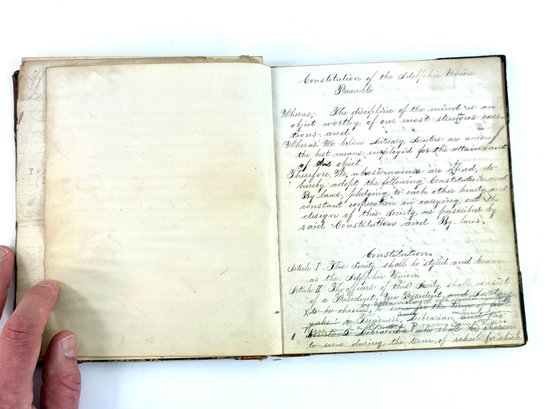 Constitution of the Adelphic Union
Preamble
Wheras; The discipline of the mind is an
object worthy of our most strenuous exer-
tions; and
Wheras We believe Literary Societies are among
the best means employed for the attainment
of this object,
Therefore We whose names are affixed, do
hereby adopt the following Constitution and
By laws, pledging to each other hearty and
constant cooperation in carrying out the
design of this Society as prescribed by
said Constitution and By laws.
Constitution.
Article I. This Society shall be styled and known
as the Adelphic Union
Article II The officers of this Society shall consist
of a President, Vice President and Secretary
to be chosen,
a Treasurer, Librarian, and
Assistant Librarian who shall be chosen
to serve during the term of school for which